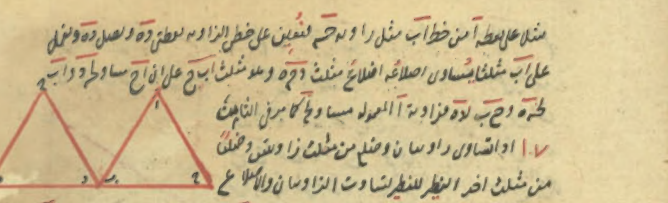 مثلا على نقطة آ من خط آب مثل زاوية حسه فنعين على خطى الزاوية نقطتى ده ونصل ده ونعمل
على آب مثلثا يتساوى اضلاعه اضلاع مثلث دحه وهو مثلث اب ح على ان اح مساو لحد و اب
لحه و ح ب لده فزاوية آ المعمولة مساو لح كما مر فى الثامن
اذا تساوى زاويتان وضلع من مثلث زاويتين وضلعا
من مثلث اخر النظير للنظير تساوت الزاويتان والاضلاع
ح
ا
ح
ب
د
ه